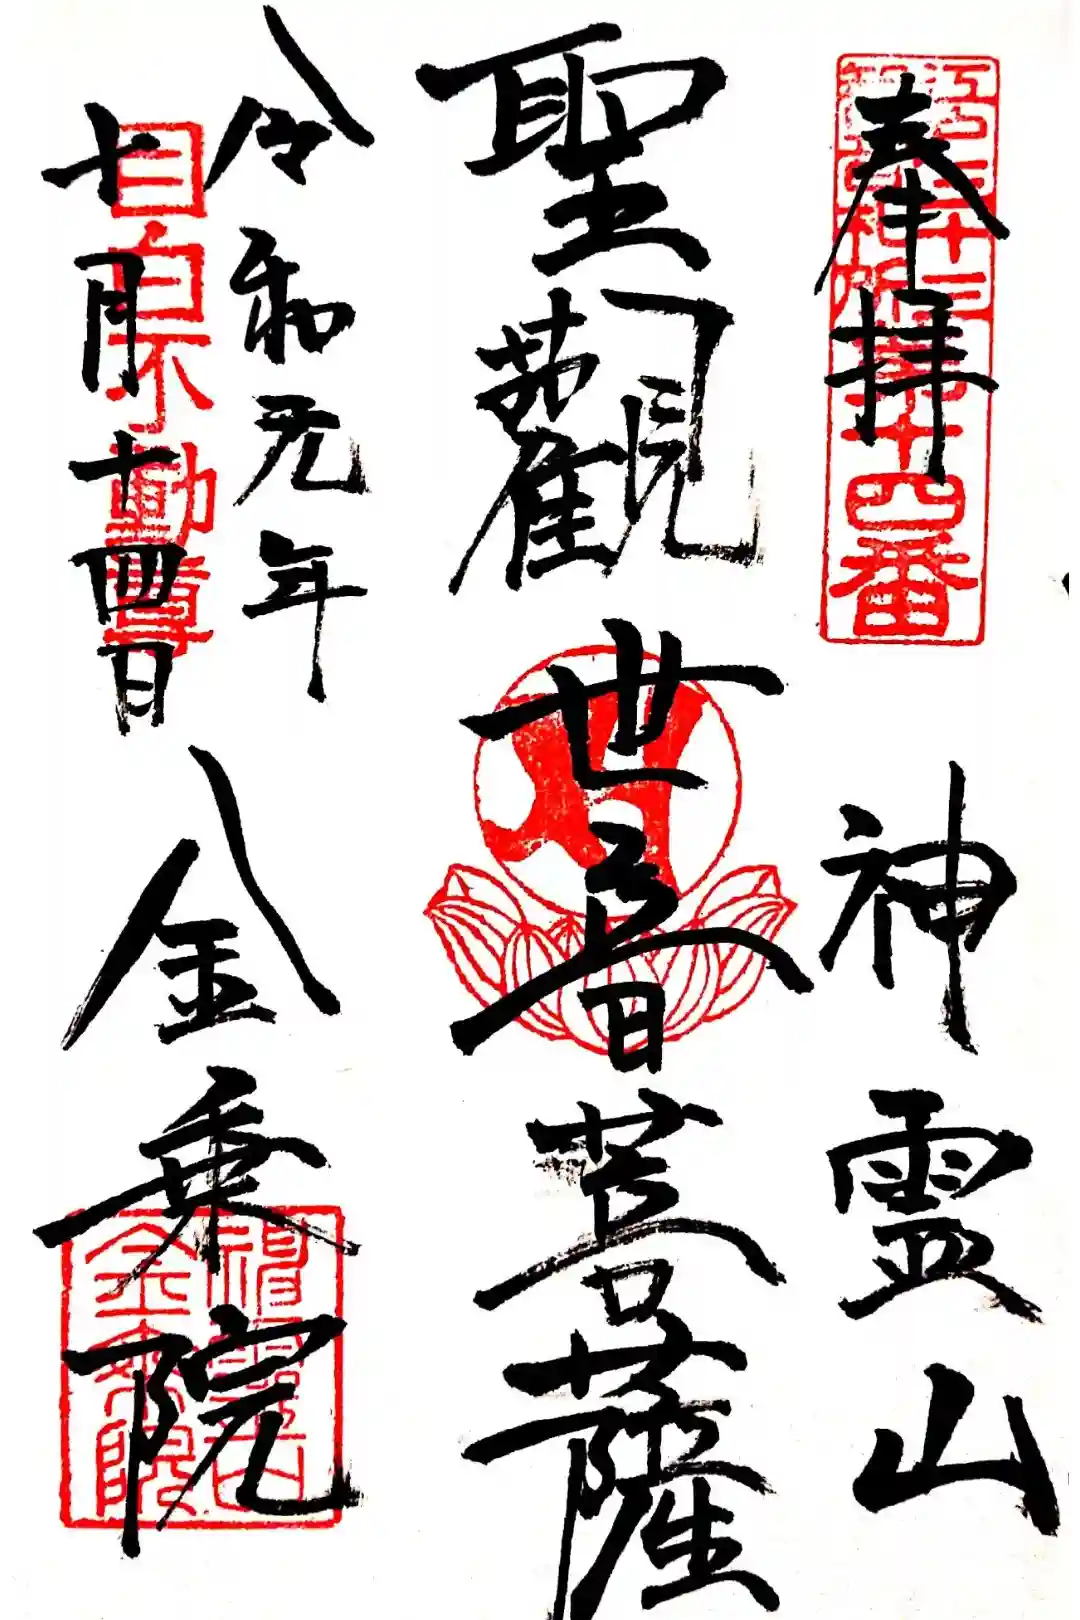 奉拝
神霊山
聖觀世音菩薩
令和元年
十月十四日
金乗院
江戸三十三
観音札所第十四番
目白不動尊
神霊山
金乗院